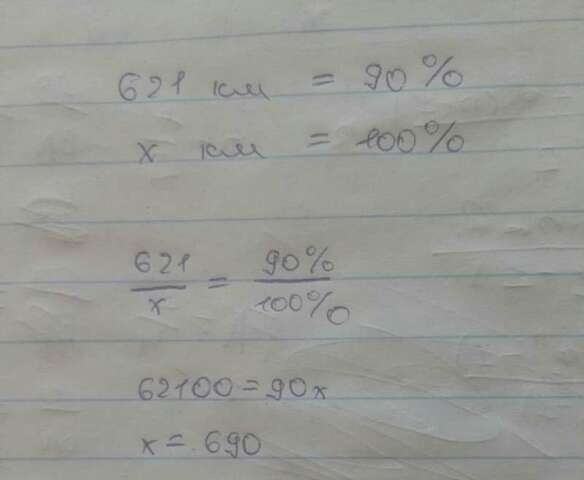 621 км = 90%
x км = 100%
621/x = 90%/100%
62100 = 90x
x = 690